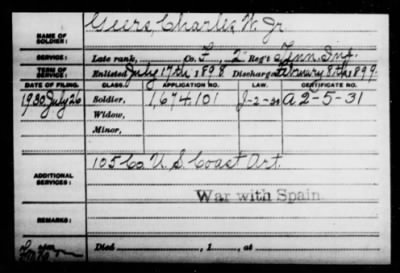 NAME OF SOLDIER: Geers, Charles W. Jr
SERVICE: Late rank, Co. F, 2" Reg't Tenn Inf.
TERM OF SERVICE: Enlisted July 17th, 1898 Discharged February 8th, 1899
DATE OF FILING. CLASS. APPLICATION NO. LAW. CERTIFICATE NO.
1930 July 26 Soldier, 1,674,101 A-2-5-31
Widow,
Minor,
ADDITIONAL SERVICES: 105 Co U.S. Coast Art.
War with Spain.
REMARKS:
Died , 1 , at